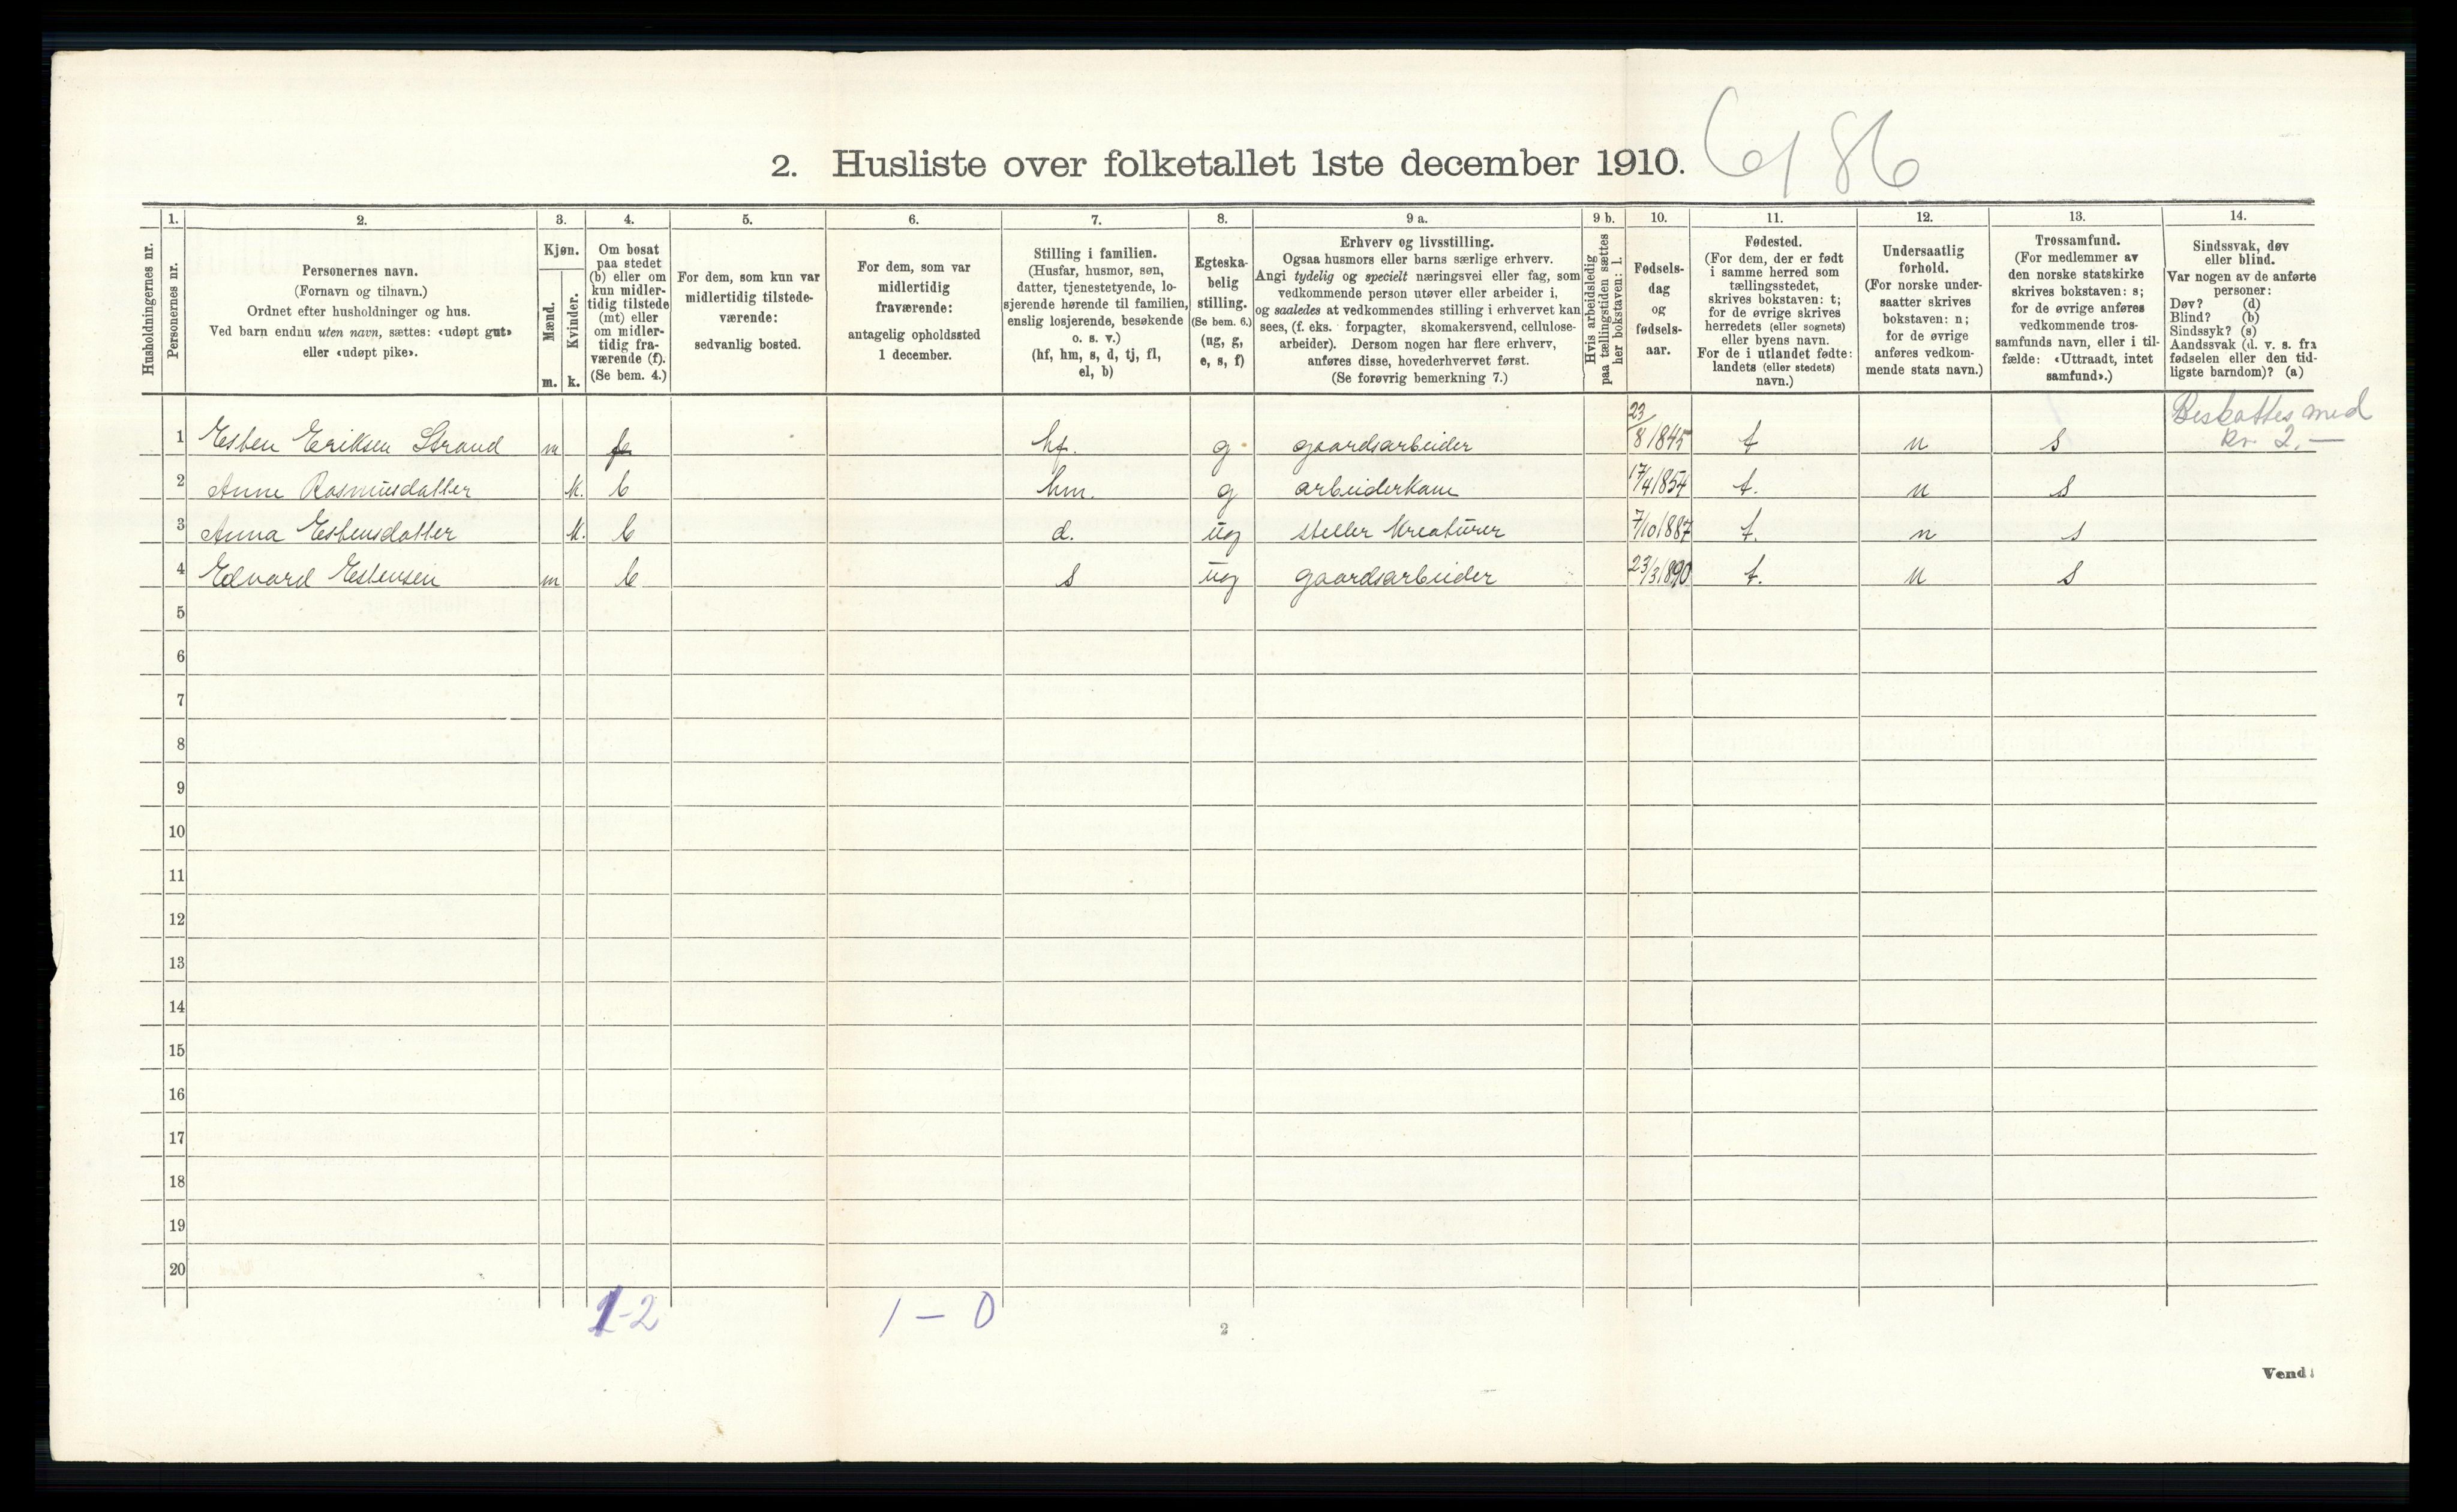 2. Husliste over folketallet 1ste december 1910.
6 86
Husholdningernes nr.
1.
Personernes nr.
2.
Personernes navn.
(Fornavn og tilnavn.)
Ordnet efter husholdninger og hus.
Ved barn endnu uten navn, sættes: «udøpt gut»
eller «udøpt pike».
3.
Kjøn.
Mænd.
Kvinder.
m. k.
4.
Om bosat
paa stedet
(b) eller om
kun midler-
tidig tilstede
(mt) eller
om midler-
tidig fra-
værende (f).
(Se bem. 4.)
5.
For dem, som kun var
midlertidig tilstede-
værende:
sedvanlig bosted.
6.
For dem, som var
midlertidig
fraværende:
antagelig opholdssted
1 december.
7.
Stilling i familien.
(Husfar, husmor, søn,
datter, tjenestetyende, lo-
sjerende hørende til familien,
enslig losjerende, besøkende
o. s. v.)
(hf, hm, s, d, tj, fl,
el, b)
8.
Egteska-
belig
stilling.
(Se bem. 6.)
(ug, g,
e, s, f)
9 a.
Erhverv og livsstilling.
Ogsaa husmors eller barns særlige erhverv.
Angi tydelig og specielt næringsvei eller fag, som
vedkommende person utøver eller arbeider i,
og saaledes at vedkommendes stilling i erhvervet kan
sees, (f. eks. forpagter, skomakersvend, cellulose-
arbeider). Dersom nogen har flere erhverv,
anføres disse, hovederhvervet først.
(Se forøvrig bemerkning 7.)
9 b.
Hvis arbeidsledig
paa tællingstiden sættes
her bokstaven: l.
10.
Fødsels-
dag
og
fødsels-
aar.
11.
Fødested.
(For dem, der er født
i samme herred som
tællingsstedet,
skrives bokstaven: t;
for de øvrige skrives
herredets (eller sognets)
eller byens navn.
For de i utlandet fødte:
landets (eller stedets)
navn.)
12.
Undersaatlig
forhold.
(For norske under-
saatter skrives
bokstaven: n;
for de øvrige
anføres vedkom-
mende stats navn.)
13.
Trossamfund.
(For medlemmer av
den norske statskirke
skrives bokstaven: s;
for de øvrige anføres
vedkommende tros-
samfunds navn, eller i til-
fælde: «Uttraadt, intet
samfund».)
14.
Sindssvak, døv
eller blind.
Var nogen av de anførte
personer:
Døv? (d)
Blind? (b)
Sindssyk? (s)
Aandssvak (d. v. s. fra
fødselen eller den tid-
ligste barndom)? (a)
Beskattes med
kr. 2.—
1 Esben Eriksen Strand m hf. g gaardsarbeider 23/8 1845 t n s
2 Anne Rasmusdatter k. b hm. g arbeiderkone 17/4 1854 t. n s
3 Anna Esbensdatter k. b d. ug steller kreaturer 7/10 1887 t. n s
4 Edvard Esbensen m b s ug gaardsarbeider 23/3 1890 t. n s
5
6
7
8
9
10
11
12
13
14
15
16
17
18
19
20
1-2 1 — 0
2
Vend!